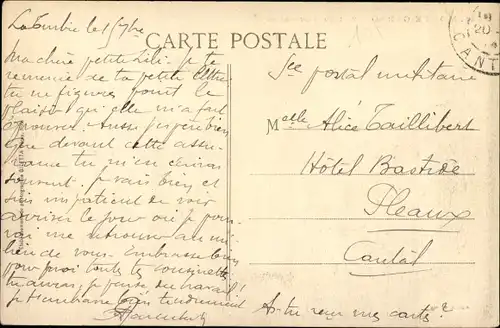 La Turbie le 1 7bre
CARTE POSTALE
Ma chère petite Lili. je te
remercie de ta petite lettre
tu ne figures point le
plaisir qu'elle m'a fait
éprouver. Aussi j'espère bien
que devant cette assu-
rance tu m'en écriras
souvent. je vais bien et
suis impatient de voir
arriver le jour où je pour-
rai me retrouver au mi-
lieu de vous. Embrasse bien
pour moi toutes tes cousinettes
tu auras, je pense du travail!
je t'embrasse bien tendrement
Sce postal militaire
Melle Alice Taillibert
Hôtel Bastide
Pleaux
Cantal
As-tu reçu mes cartes?
20
CANT